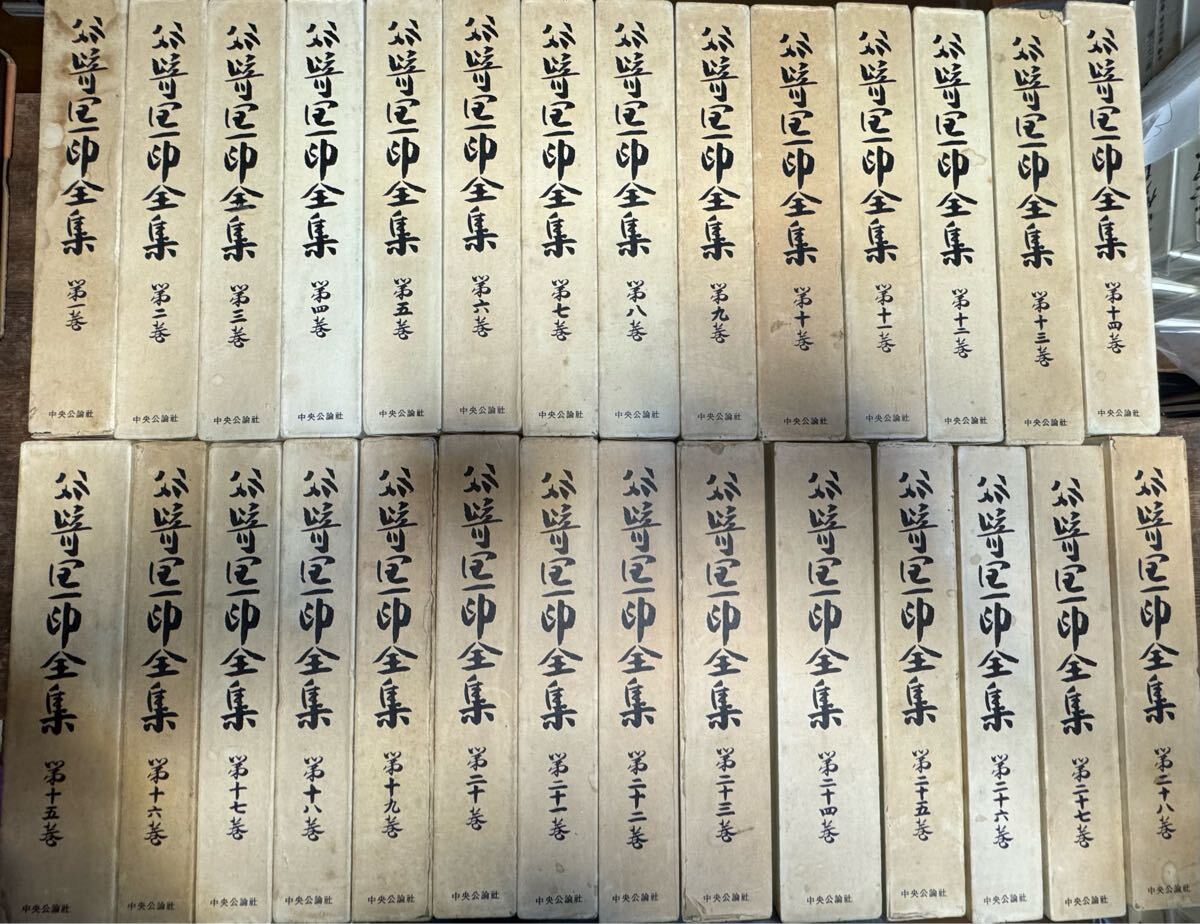 谷崎潤一郎全集 第一巻
中央公論社
谷崎潤一郎全集 第二巻
中央公論社
谷崎潤一郎全集 第三巻
中央公論社
谷崎潤一郎全集 第四巻
中央公論社
谷崎潤一郎全集 第五巻
中央公論社
谷崎潤一郎全集 第六巻
中央公論社
谷崎潤一郎全集 第七巻
中央公論社
谷崎潤一郎全集 第八巻
中央公論社
谷崎潤一郎全集 第九巻
中央公論社
谷崎潤一郎全集 第十巻
中央公論社
谷崎潤一郎全集 第十一巻
中央公論社
谷崎潤一郎全集 第十二巻
中央公論社
谷崎潤一郎全集 第十三巻
中央公論社
谷崎潤一郎全集 第十四巻
中央公論社
谷崎潤一郎全集 第十五巻
中央公論社
谷崎潤一郎全集 第十六巻
中央公論社
谷崎潤一郎全集 第十七巻
中央公論社
谷崎潤一郎全集 第十八巻
中央公論社
谷崎潤一郎全集 第十九巻
中央公論社
谷崎潤一郎全集 第二十巻
中央公論社
谷崎潤一郎全集 第二十一巻
中央公論社
谷崎潤一郎全集 第二十二巻
中央公論社
谷崎潤一郎全集 第二十三巻
中央公論社
谷崎潤一郎全集 第二十四巻
中央公論社
谷崎潤一郎全集 第二十五巻
中央公論社
谷崎潤一郎全集 第二十六巻
中央公論社
谷崎潤一郎全集 第二十七巻
中央公論社
谷崎潤一郎全集 第二十八巻
中央公論社